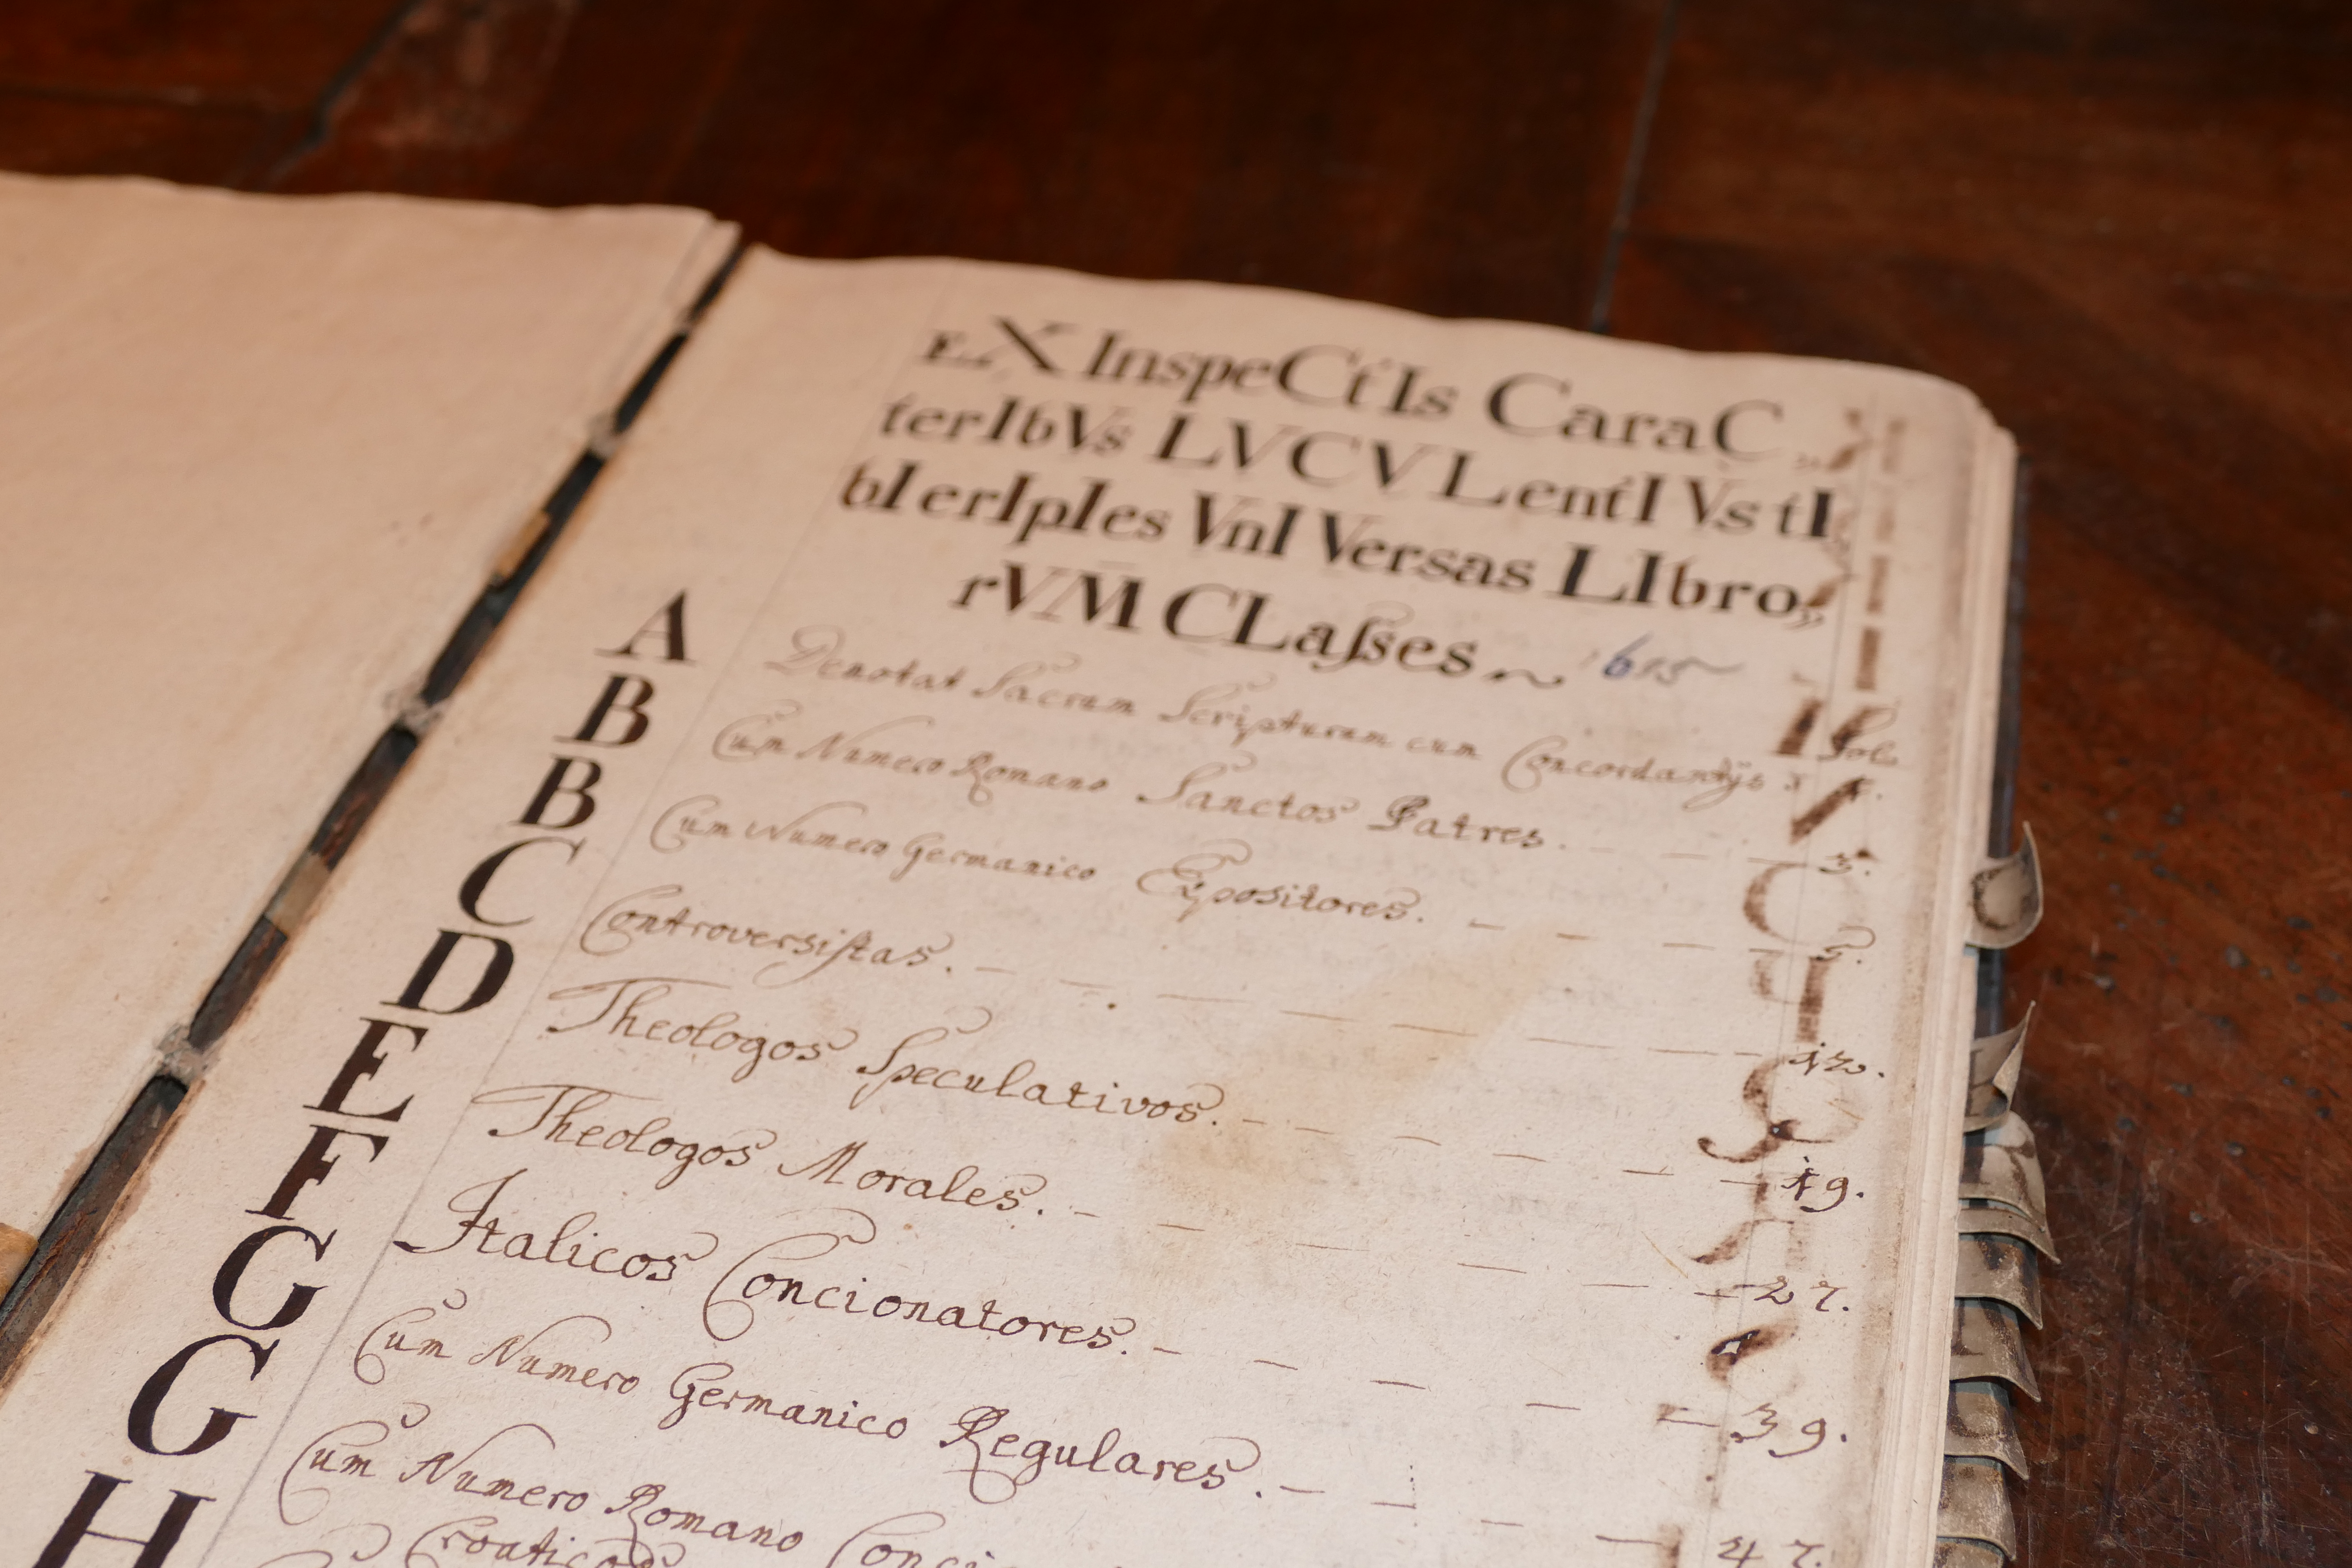 EX InspeCtIs CaraC„
terIbVs LVCVLentIVs tI
bI erIpIes VnIVersas LIbro„
rVM̄ CLaſses 1615
Fol.
A Denotat Sacram Scripturam cum Concordantijs 1.
B Cum Numero Romano Sanctos Patres. – – – 3.
B Cum Numero Germanico Expositores. – – – – 5.
C Controversiſtas. – – – – – – – 12.
D Theologos Speculativos. – – – – – – 19.
E Theologos Morales. – – – – – – 27.
F Italicos Concionatores. – – – – – 39.
G Cum Numero Germanico Regulares. – – – – 47.
G Cum Numero Romano
H Croaticos